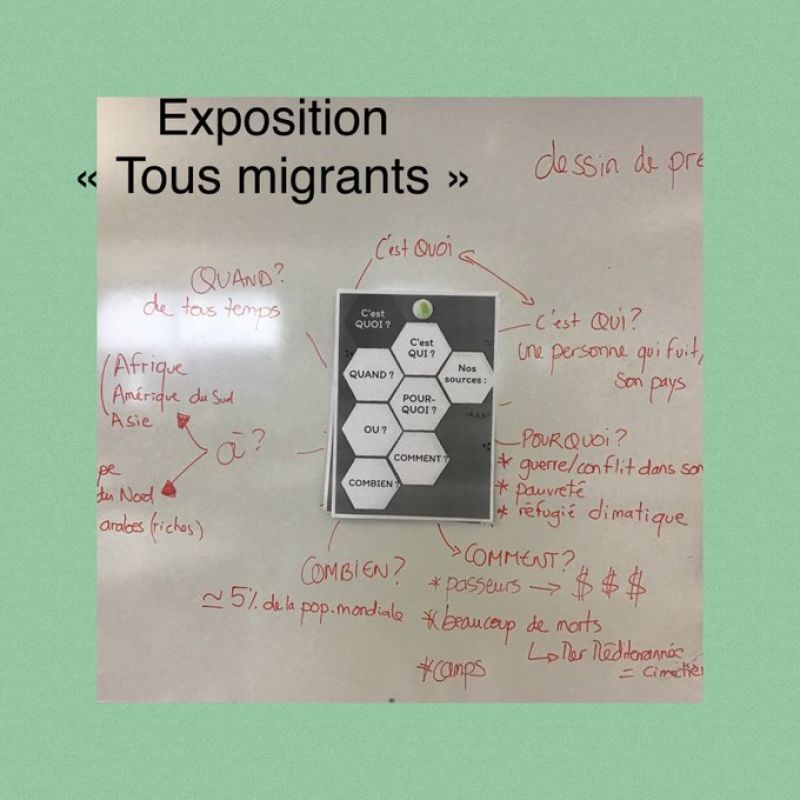 Exposition
« Tous migrants »
dessin de pre
C'est QUOI
QUAND?
de tous temps
C'est QUI?
une personne qui fuit,
son pays
C'est
QUOI ?
C'est
QUI ?
QUAND ?
Nos
sources :
POUR-
QUOI ?
OU ?
COMMENT ?
COMBIEN ?
(Afrique
Amérique du Sud
Asie
où?
pe
du Nord
arabes (riches)
POURQUOI?
* guerre/conflit dans son
* pauvreté
* réfugié climatique
COMBIEN?
≃ 5% de la pop. mondiale
COMMENT?
* passeurs → $ $ $
* beaucoup de morts
↳ Mer Méditerannée
= cimetièr
* camps